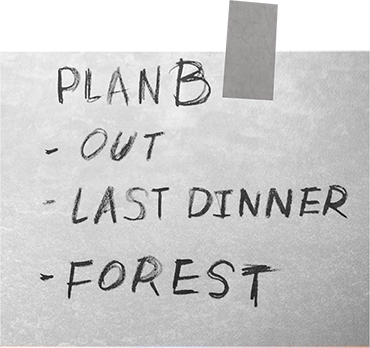 PLAN B
- OUT
- LAST DINNER
- FOREST